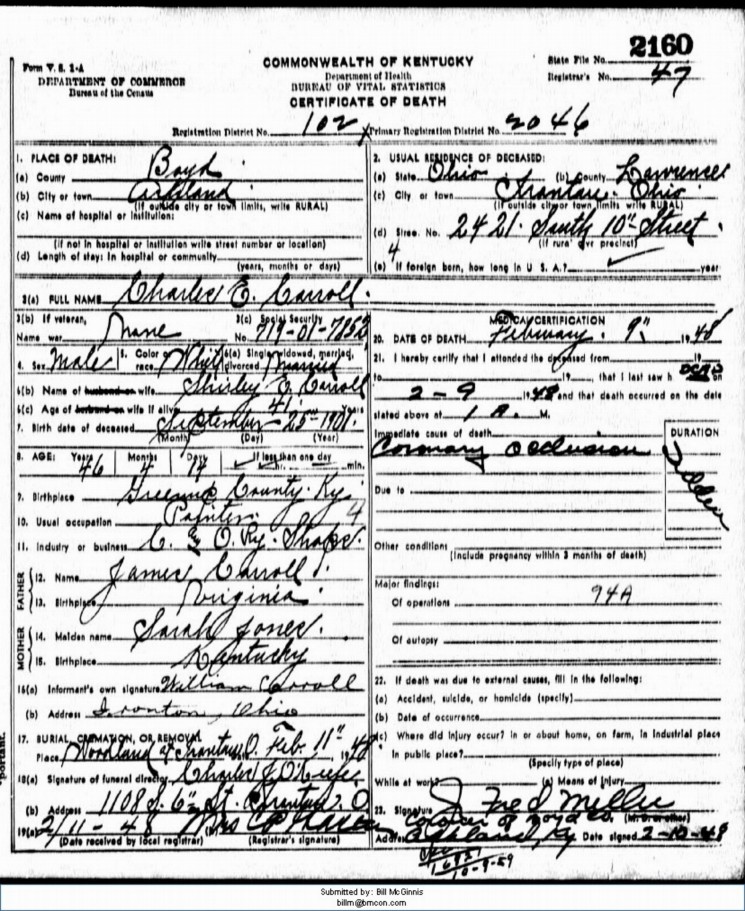 2160
Form V. S. 1-A
DEPARTMENT OF COMMERCE
Bureau of the Census
COMMONWEALTH OF KENTUCKY
Department of Health
BUREAU OF VITAL STATISTICS
CERTIFICATE OF DEATH
State File No.
Registrar's No. 47
Registration District No. 102 Primary Registration District No. 2046
1. PLACE OF DEATH:
(a) County Boyd
(b) City or town Ashland
(If outside city or town limits, write RURAL)
(c) Name of hospital or institution:
(If not in hospital or institution write street number or location)
(d) Length of stay: In hospital or community
(years, months or days)
2. USUAL RESIDENCE OF DECEASED:
(a) State Ohio (b) County Lawrence
(c) City or town Ironton, Ohio
(If outside city or town limits write RURAL)
(d) Street No. 2421 South 10th Street
(If rural give precinct)
4
(e) If foreign born, how long in U S A.? year
3(a) FULL NAME Charles E. Carroll.
3(b) If veteran,
Name war None
3(c) Social Security
No.
4. Sex Male 5. Color or race White 6(a) Single, widowed, married, divorced Married
6(b) Name of husband or wife Shirley E Carroll
6(c) Age of husband or wife if alive 41 Years
7. Birth date of deceased September 25th 1901.
(Month) (Day) (Year)
8. AGE: Years 46 Months 4 Days 14 If less than one day hr. min.
9. Birthplace Greenup County. Ky.
10. Usual occupation Painter. 4
11. Industry or business C. & O. Ry. Shops.
FATHER
12. Name James Carroll.
13. Birthplace Virginia.
MOTHER
14. Maiden name Sarah Jones.
15. Birthplace Kentucky
16(a) Informant's own signature William Carroll
(b) Address Ironton, Ohio
17. BURIAL, CREMATION, OR REMOVAL
Place Woodland at Ironton O. Feb. 11" 1948
18(a) Signature of funeral director Charles J O'Keefe
(b) Address 1108 S. 6th St. Ironton, O.
19(a) 2/11-48 (b) Mrs
(Date received by local registrar) (Registrar's signature)
MEDICAL CERTIFICATION
20. DATE OF DEATH February. 9th 1948
21. I hereby certify that I attended the deceased from 19
to 19, that I last saw h on
2-9 1948 and that death occurred on the date
stated above at 1 A. M.
Immediate cause of death
Coronary Occlusion
DURATION
Sudden
Due to
Other conditions
(Include pregnancy within 3 months of death)
Major findings:
Of operations 94A
Of autopsy
22. If death was due to external causes, fill in the following:
(a) Accident, suicide, or homicide (specify)
(b) Date of occurrence
(c) Where did injury occur? in or about home, on farm, in industrial place
In public place?
(Specify type of place)
While at work? (e) Means of Injury
23. Signature J Fred Miller
Coroner of Boyd Co. (M. D. or other)
Address Ashland, Ky Date signed 2-10-48
10-9-59
Submitted by: Bill McGinnis
billm@bmcon.com